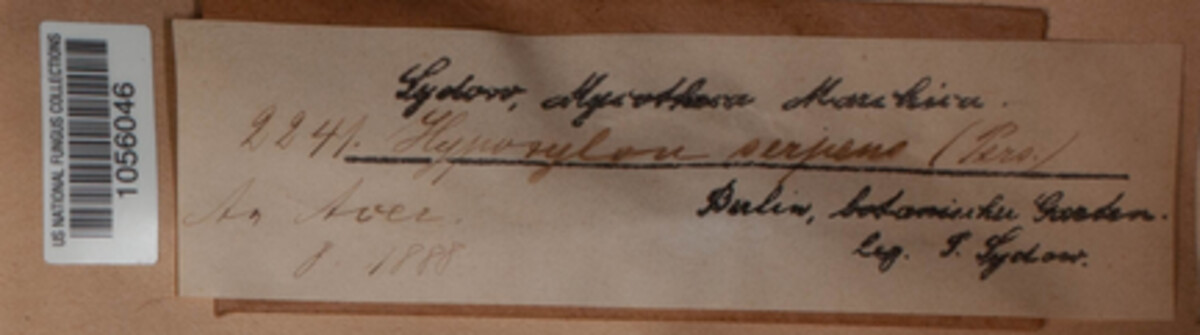 US NATIONAL FUNGUS COLLECTIONS
1056046
Sydow, Mycotheca Marchica.
2241. Hypoxylon serpens (Pers.)
An Acer.
8. 1888
Berlin, botanischer Garten.
leg. P. Sydow.